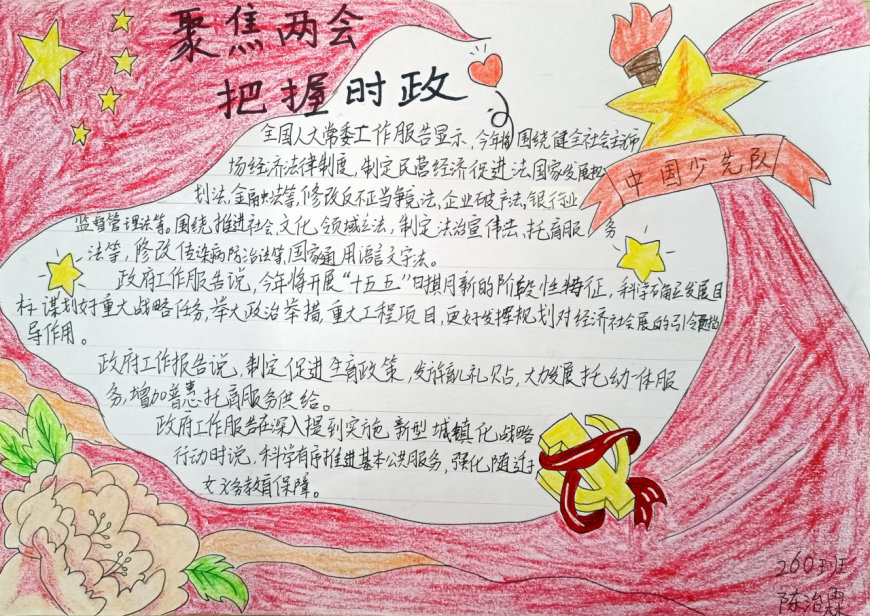 聚焦两会
把握时政
全国人大常委工作服告显示,今年将围绕健全社会主
场经济法律制度,制定民营经济促进法国家发展
划法,金融法等,修改反不正当争竞法,企业破产法,银行业
监督管理法等。围绕推进社会,文化领域立法,制定法治宣传法、托育服务
法等,修改传染病防治法等,国家通用语言文字法。
政府工作服告说,今年将开展“十五五”时期新的阶段性特征,科学确定发展目
标谋划好重大战略任务,举大政治举措,重大工程项目,更好发挥规划对经济社会展的引领
导作用。
政府工作报告说,制定促进生育政策,发放育儿礼贝占,大力发展托幼一体服
务,增加普惠托育服务供给。
政府工作服告在深入提到实施新型城镇化战略
行动时说,科学有序推进基本公共服务,强化随迁子
女义务教育保障。
中国少先队
260班
陈治霖